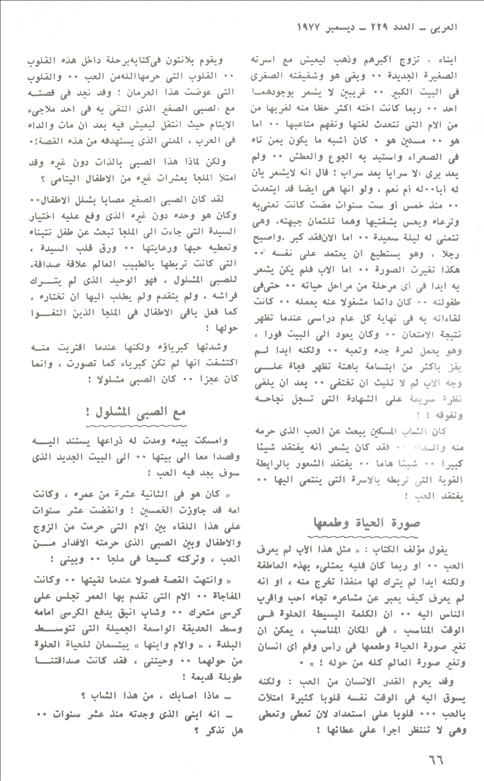 العربى ــ العدد ٢٢٩ ــ ديسمبر ١٩٧٧
ابناء ، تزوج اكبرهم وذهب ليعيش مع اسرته
الصغيرة الجديدة ٠٠ وبقى هو وشقيقته الصغرى
فى البيت الكبير ٠٠ غريبين لا يشعر بوجودهما
احد ٠٠ ربما كانت اخته اكثر حظا منه لقربها من
من الام التى تتحدث لغتها وتفهم متاعبها ٠٠ اما
هو ٠٠ مسكين هو ٠ كان أشبه ما يكون بمن تاه
فى الصحراء واستبد به الجوع والعطش ٠٠ ولم
يعد يرى الا سرابا بعد سراب ! قال انه لايشعر بان
له أبا ٠٠له أم نعم ، ولو انها هى ايضا قد ابتعدت
٠٠ منذ خمس أو ست سنوات مضت كانت تعنى به
وترعاه ويحس بشفتيها وهما تلثمان جبهته، وهى
تتمنى له ليلة سعيدة ٠٠ اما الان فقد كبر ،واصبح
رجلا ، وهو يستطيع ان يعتمد على نفسه ٠٠
هكذا تغيرت الصورة ٠٠ اما الاب فلم يكن يشعر
به ابدا فى أى مرحلة من مراحل حياته ٠٠ حتى فى
طفولته ٠٠ كان دائما مشغولا عنه بعمله ٠٠ كانت
لقاءاته به فى نهاية كل عام دراسى عندما تظهر
نتيجة الامتحان ٠٠ وكان يعود الى البيت فورا ،
وهو يحمل ثمرة جده وتعبه ٠٠ ولكنه ابدا لم
يفز باكثر من ابتسامة باهتة تظهر فجأة على
وجه الاب ثم لا تلبث ان تختفى ٠٠ بعد ان يلقى
نظرة سريعة على الشهادة التى تسجل نجاحه
وتفوقه ! !
كان الشاب المسكين يبحث عن الحب الذى حرمه
منه والده ٠٠ فقد كان يشعر انه يفتقد شيئا
كبيرا ٠٠ شيئا هاما ٠٠ يفتقد الشعور بالرابطة
القوية التى تربطه بالاسرة التى ينتمى اليها ٠٠
يفتقد الحب !
صورة الحياة وطعمها
يقول مؤلف الكتاب : « مثل هذا الأب لم يعرف
الحب ٠٠ او ربما كان قلبه يمتلىء بهذه العاطفة
ولكنه ابدا لم يترك لها منفذا تخرج منه ، او انه
لم يعرف كيف يعبر عن مشاعره تجاه احب واقرب
الناس اليه ٠٠ ان الكلمة البسيطة الحلوة فى
الوقت المناسب ، فى المكان المناسب ، يمكن ان
تغير صورة الحياة وطعمها فى رأس وفم أى انسان
وتغير صورة العالم كله من حوله ! » ٠
وقد يحرم القدر الانسان من الحب : ولكنه
يسوق اليه فى الوقت نفسه قلوبا كثيرة امتلات
بالحب ٠٠٠ قلوبا على استعداد لان تعطى وتعطى
وهى لا تنتظر اجرا على عطائها !
ويقوم بلانتون فى كتابه برحلة داخل هذه القلوب
٠٠ القلوب التى حرمها الله من الحب ٠٠ والقلوب
التى عوضت هذا الحرمان ! وقد نجد فى قصته
مع ،الصبى الصغير الذى التقى به فى احد ملاجىء
الايتام حيث انتقل ليعيش فيه بعد أن مات والداه
فى الحرب ، المعنى الذى يستهدفه من هذه القصة!٠
ولكن لماذا هذا الصبى بالذات دون غيره وقد
امتلأ الملجأ بعشرات غيره من الاطفال اليتامى ؟
لقد كان الصبى الصغير مصابا بشلل الاطفال٠٠
وكان هو وحده دون غيره الذى وقع عليه اختيار
السيدة التى جاءت الى الملجأ تبحث عن طفل تتبناه
وتعطيه حبها ورعايتها ٠٠ ورق قلب السيدة ،
التى كانت تربطها بالطبيب العالم علاقة صداقة،
للصبى المشلول ، فهو الوحيد الذى لم يترك
فراشه ، ولم يتقدم ولم يطلب اليها ان تختاره ،
كما فعل باقى الاطفال فى الملجأ الذين التفوا
حولها !
وشدتها كبرياؤه ولكنها عندما اقتربت منه
اكتشفت انها لم تكن كبرياء كما تصورت ، وانما
كان عجزا ٠٠ كان الصبى مشلولا !
مع الصبى المشلول !
وامسكت بيده ومدت له ذراعها يستند اليه
وقصدا معا الى بيتها ٠٠ الى البيت الجديد الذى
سوف يجد فيه الحب !
« كان هو فى الثانية عشرة من عمره ، وكانت
امه قد جاوزت الخمسين ! وانقضت عشر سنوات
على هذا اللقاء بين الام التى حرمت من الزوج
والاطفال وبين الصبى الذى حرمته الاقدار من
الحب ، وتركته كسيحا فى ملجأ ٠٠ وبينى !
« وانتهت القصة فصولا عندما لقيتها ٠٠ وكانت
المفاجأة ٠٠ الام التى تقدم بها العمر تجلس على
كرسى متحرك ٠٠ وشاب انيق يدفع الكرسى امامه
وسط الحديقة الواسعة الجميلة التى تتوسط
البلدة ، « والام وابنها » يبتسمان للحياة الحلوة
من حولهما ٠٠ وحيتنى ، فقد كانت صداقتنا
طويلة قديمة !
ــ ماذا اصابك ، من هذا الشاب ؟
ــ انه ابنى الذى وجدته منذ عشر سنوات ٠٠
هل تذكر ؟
٦٦